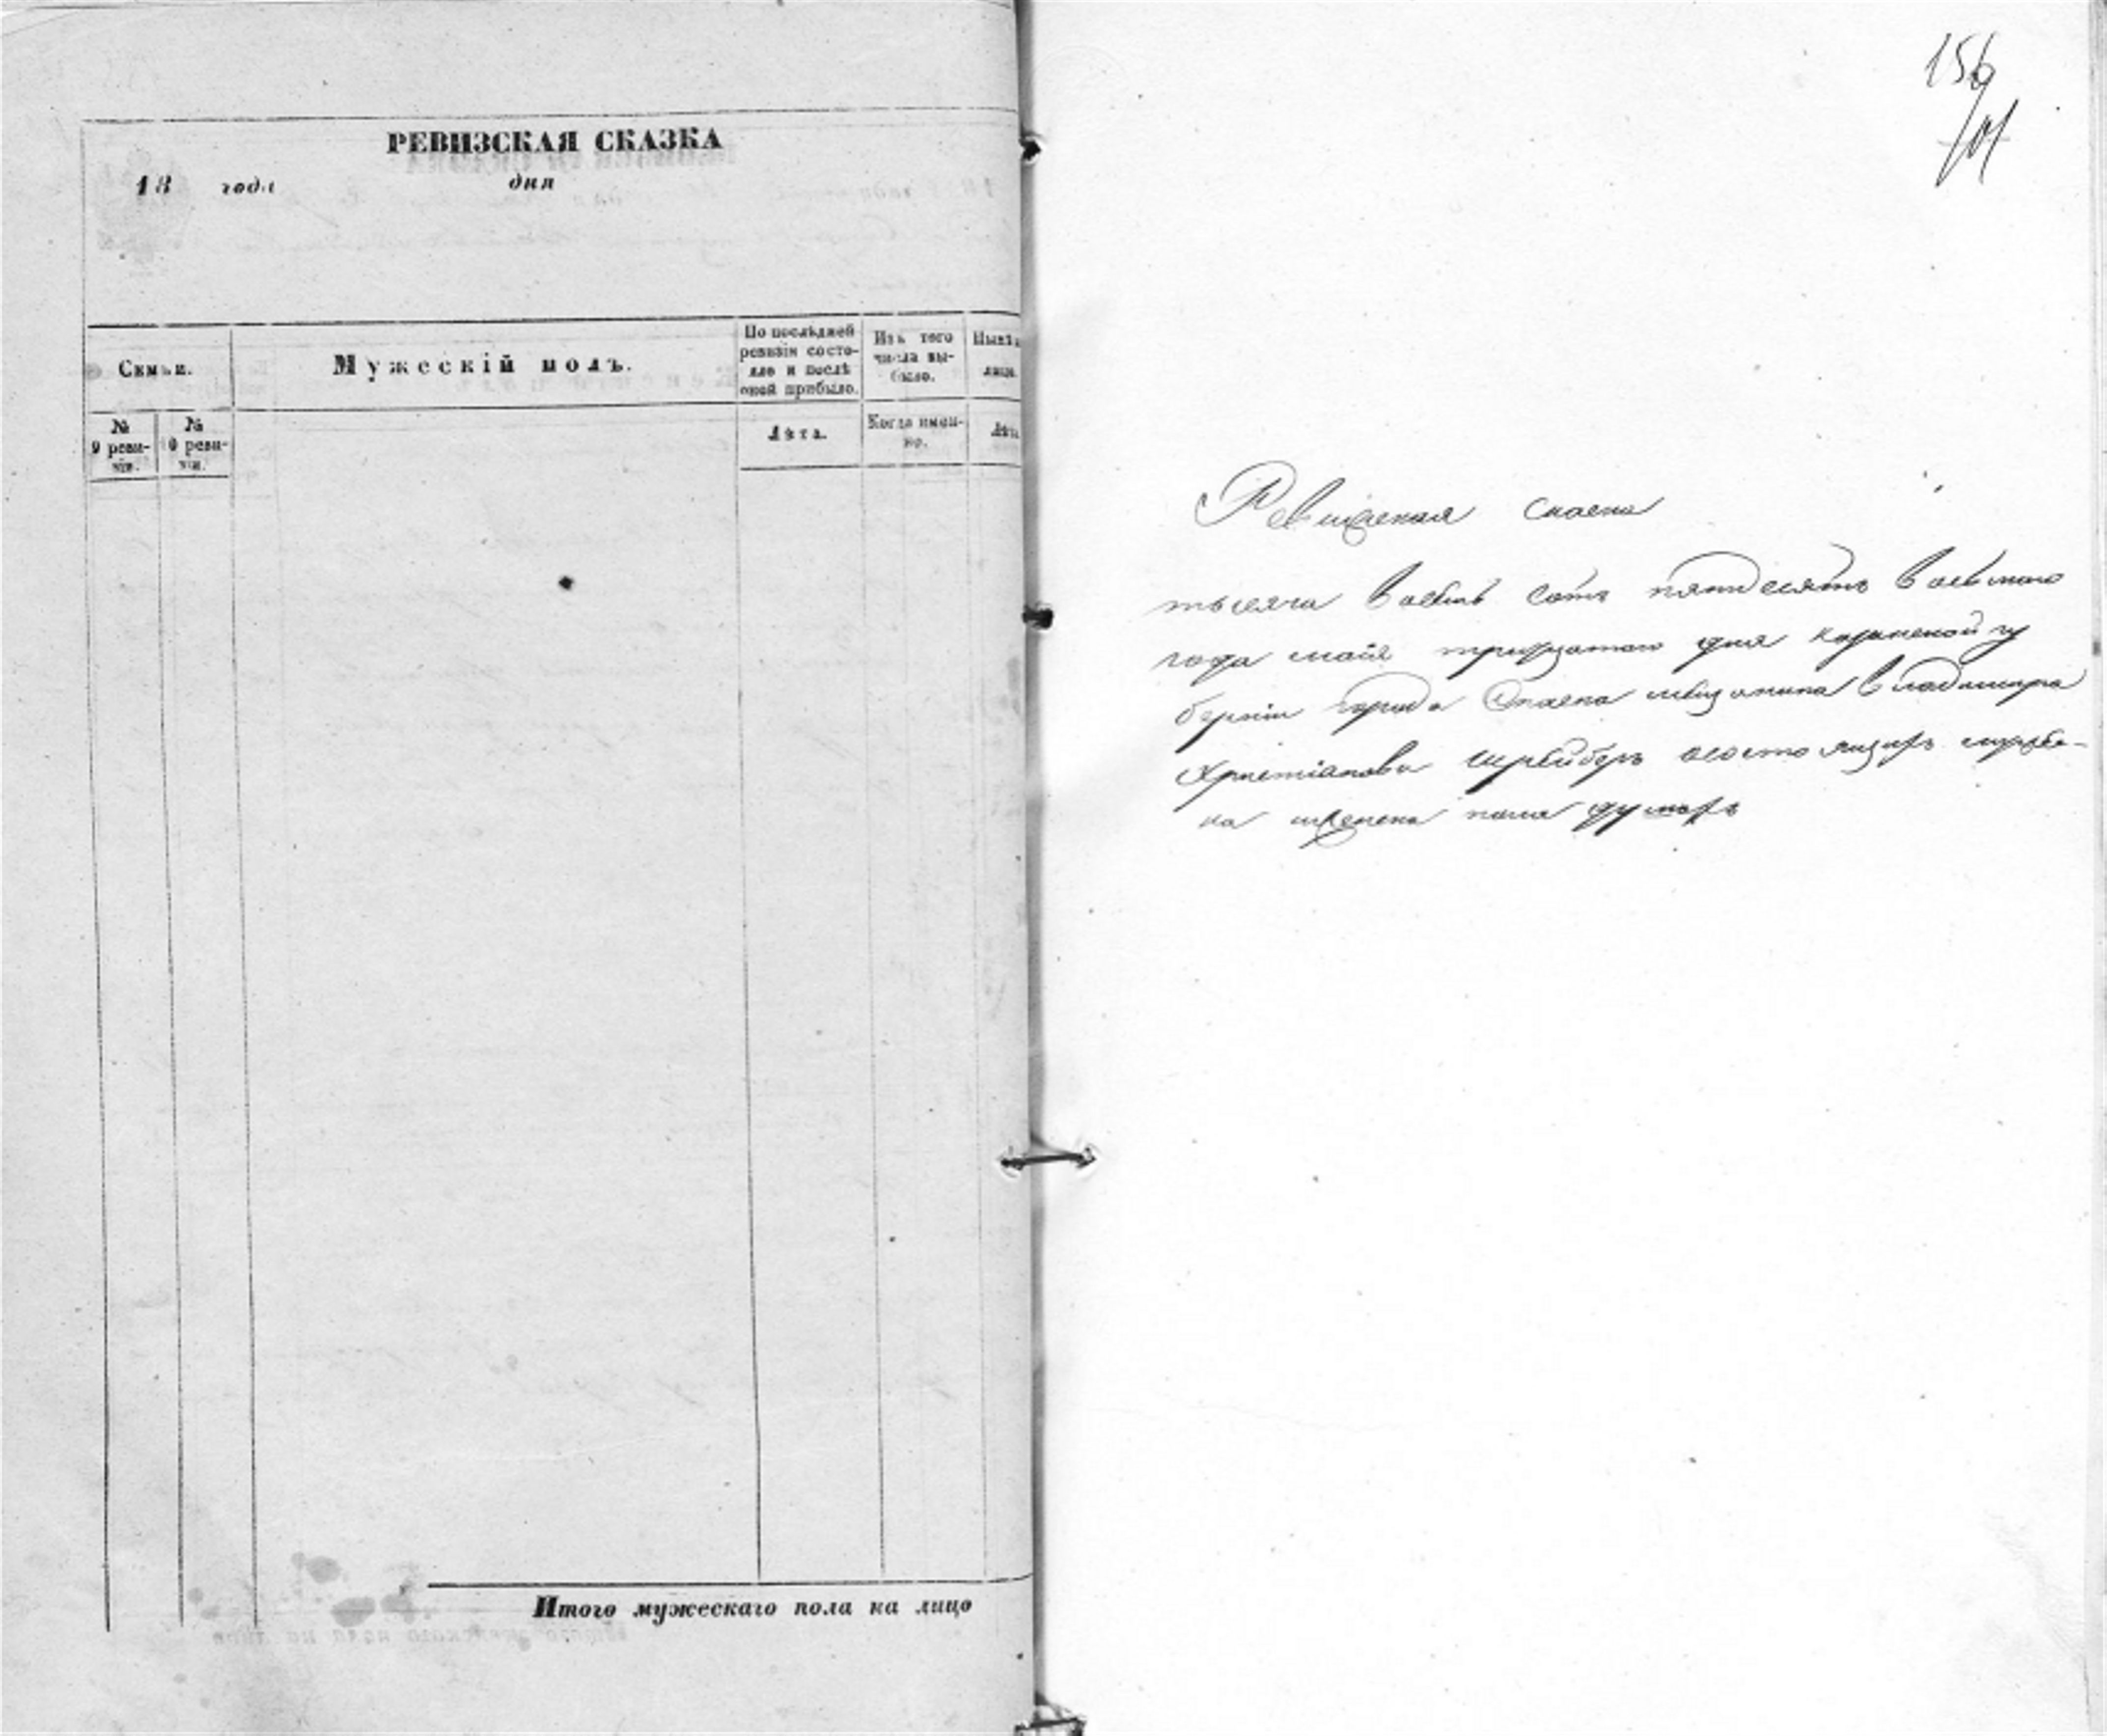 РЕВИЗСКАЯ СКАЗКА
18 года дня
Семьи.
Мужескій полъ.
По послѣдней ревизіи состояло и послѣ оной прибыло.
Изъ того числа выбыло.
Нынѣ
лицо.
№ 9 ревизіи.
№ 10 ревизіи.
Лѣта.
Когда именно.
Лѣта
Итого мужескаго пола на лицо
156
101
Ревизская сказка
тысяча восемь сотъ пятдесятъ восьмаго
года мая тридцатаго дня казанской гу
берніи города Спаска мещанина Владимира
Христіанова Шрейберъ о состоящихъ мужеска
и женска пола душахъ